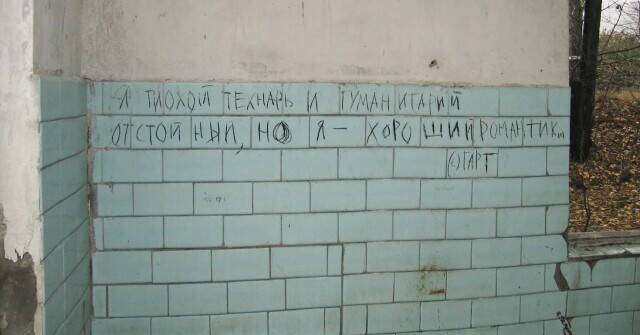 Я ПЛОХОЙ ТЕХНАРЬ И ГУМАНИТАРИЙ
ОТСТОЙНЫЙ, НО Я - ХОРОШИЙ РОМАНТИК...